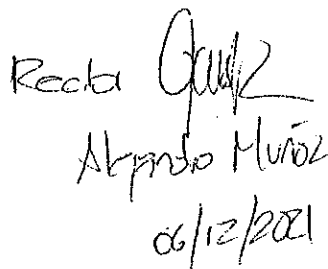 Recibí
Alejandro Muñoz
06/12/2021